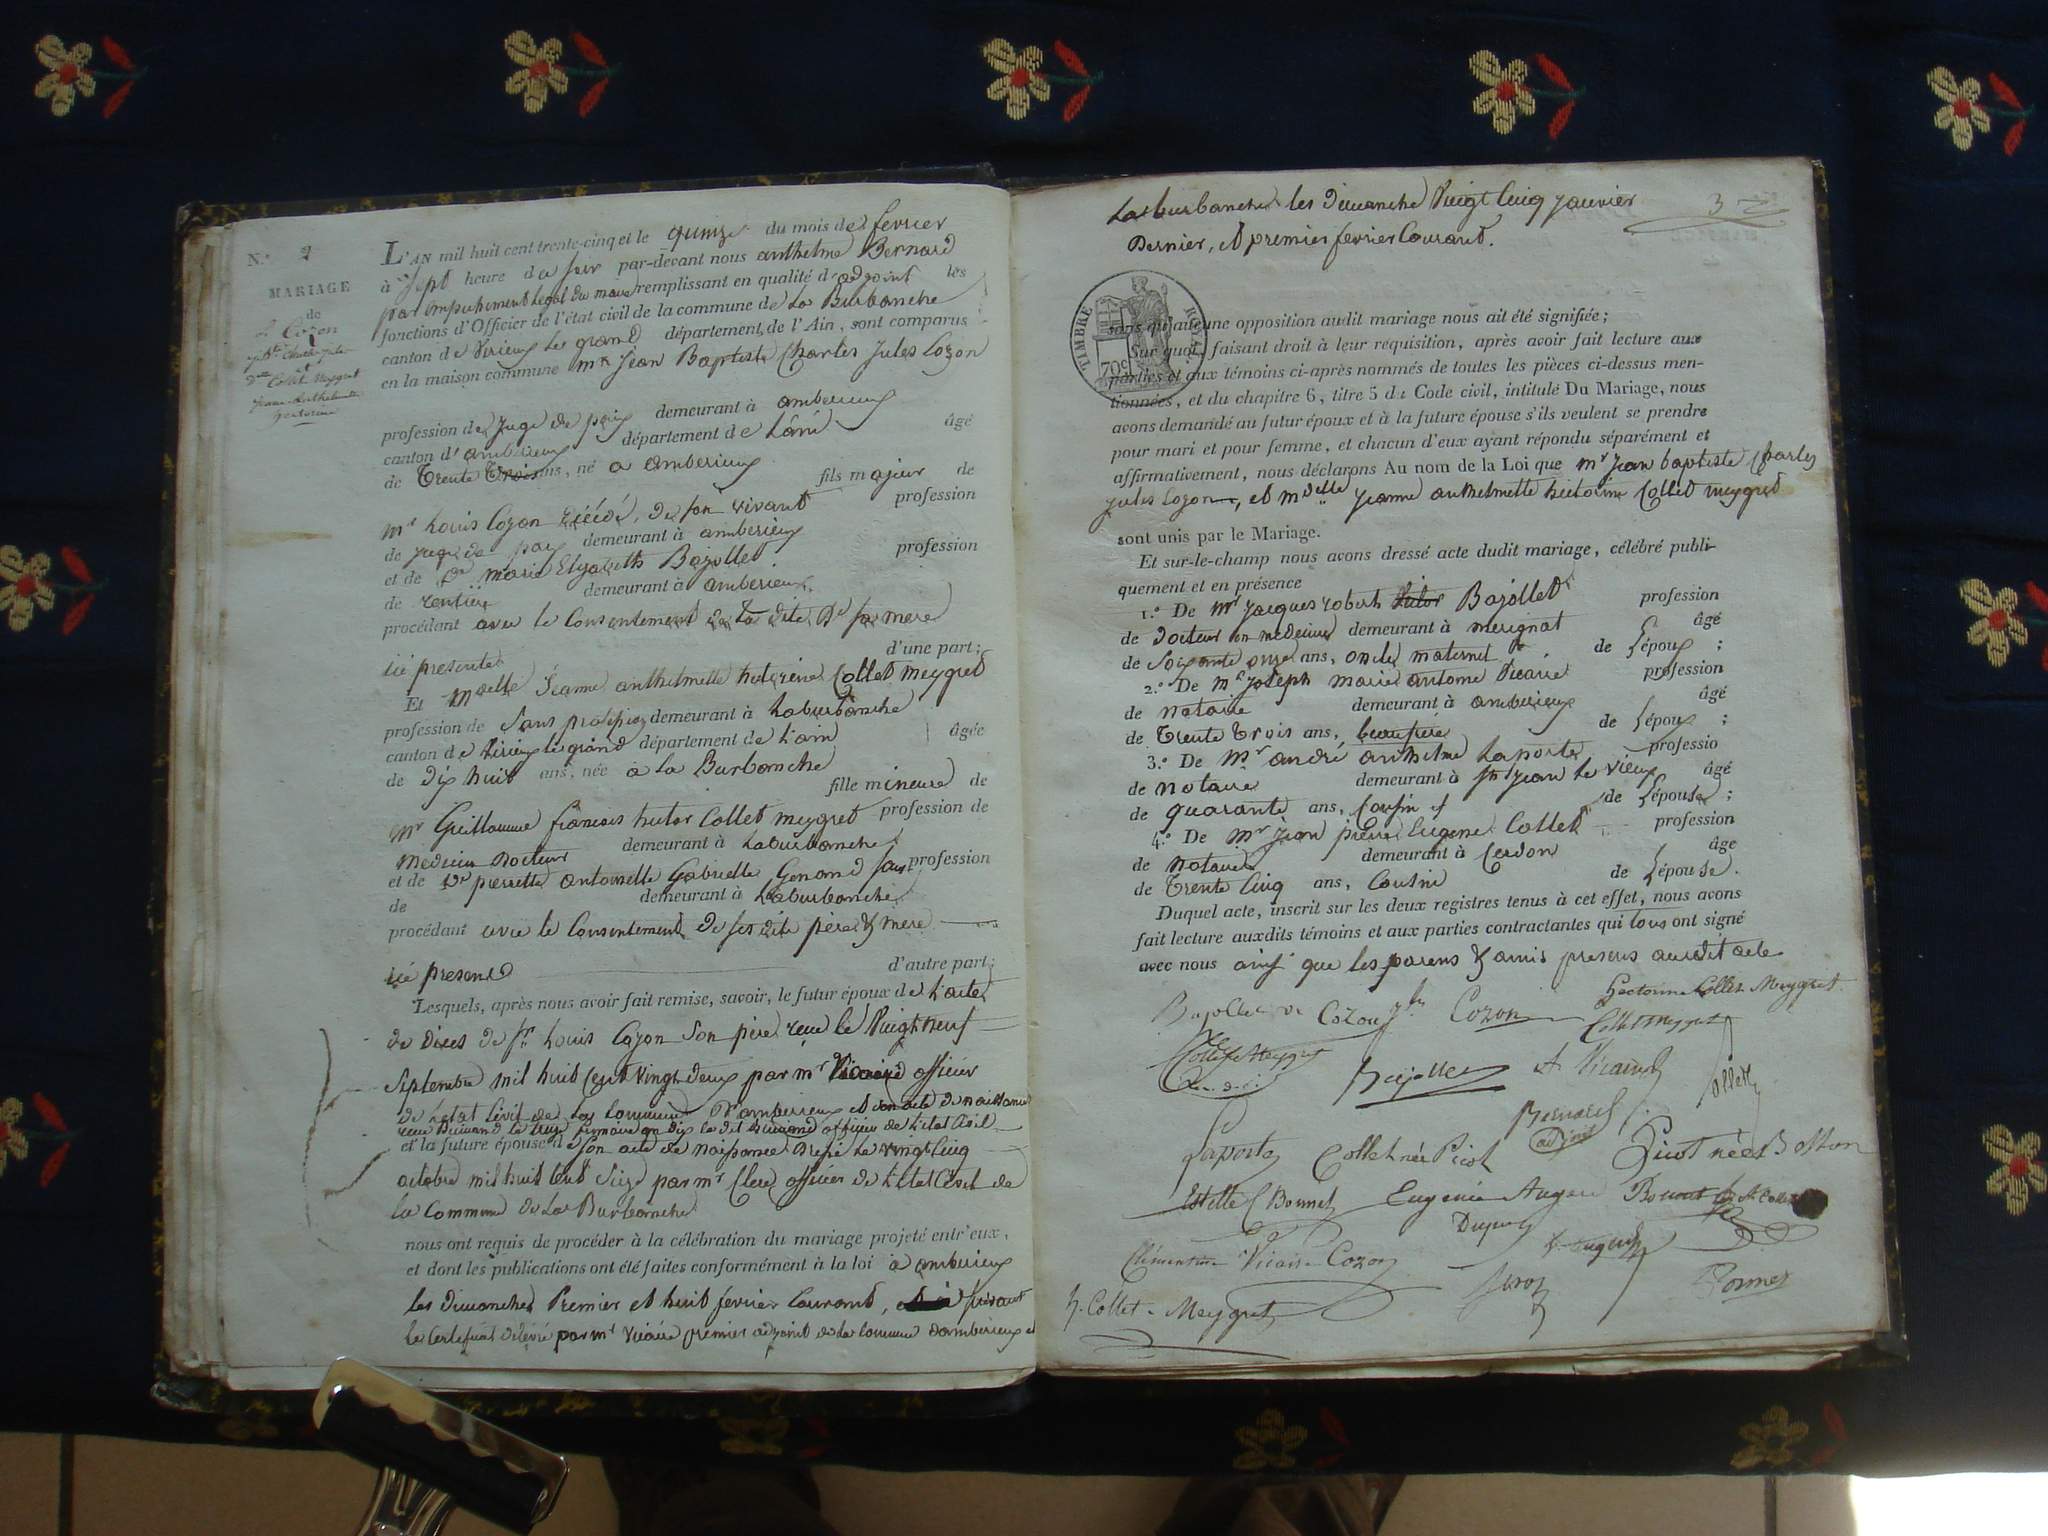 N.º 2
MARIAGE
de
Cozon
et
Dlle Collet Meygret
Jeanne Anthelmette
hectorine
L'AN mil huit cent trente-cinq et le quinze du mois de fevrier
à Sept heure du soir par-devant nous anthelme Bernard
par empechement legal du maire remplissant en qualité d'adjoint les
fonctions d'Officier de l'état civil de la commune de La Burbanche
canton de Virieu le grand département de l'Ain, sont comparus
en la maison commune mr Jean Baptiste Charles Jules Cozon
profession de Juge de paix demeurant à amberieux
canton d'amberieux département de L'ain âgé
de Trente Trois ans, né a amberieux
fils majeur de
mr Louis Cozon décédé, de son vivant profession
de juge de paix demeurant à amberieux
et de De marie Elyzabeth Bajollet profession
de rentiere demeurant à amberieux
procédant avec le Consentement de la dite De sa mere
ici presente d'une part;
Et Mdelle Jeanne anthelmette hectorine Collet meygret
profession de Sans profession demeurant à Laburbanche
canton de Virieu le grand département de L'ain âgée
de dix huit ans, née à La Burbanche
fille mineure de
mr Guillaume francois hector Collet meygret profession de
Medecin Docteur demeurant à Laburbanche
et de De pierrette antoinette Gabrielle Genand sans profession
de demeurant à Laburbanche
procédant avec le Consentement de ses dits père & mere
ici present d'autre part;
Lesquels, après nous avoir fait remise, savoir, le futur époux de L'acte
de décès de Sr Louis Cozon son père reçu le Vingt neuf
Septembre mil huit Cent vingt deux par mr Vicaire officier
de L'etat Civil de la Commune D'amberieux et son acte de naissance
et la future épouse de son acte de naissance Dressé le vingt cinq
octobre mil huit Cent Seize par mr Clerc officier de L'etat Civil de
la Commune de La Burbanche
nous ont requis de procéder à la célébration du mariage projeté entr'eux,
et dont les publications ont été faites conformément à la loi à amberieux
les dimanches Premier et huit fevrier Courant, suivant
le Certificat délivré par mr Vicaire premier adjoint de la Commune d'amberieux et
La burbanche les dimanche Vingt Cinq janvier 3
Dernier, et premier fevrier Courant.
TIMBRE ROYAL
70c
sans qu'aucune opposition audit mariage nous ait été signifiée;
Sur quoi, faisant droit à leur réquisition, après avoir fait lecture aux
parties et aux témoins ci-après nommés de toutes les pièces ci-dessus men-
tionnées, et du chapitre 6, titre 5 du Code civil, intitulé Du Mariage, nous
avons demandé au futur époux et à la future épouse s'ils veulent se prendre
pour mari et pour femme, et chacun d'eux ayant répondu séparément et
affirmativement, nous déclarons Au nom de la Loi que mr Jean baptiste Charles
jules Cozon, et mdelle Jeanne anthelmette hectorine Collet meygret
sont unis par le Mariage.
Et sur-le-champ nous avons dressé acte dudit mariage, célébré publi-
quement et en présence
1.º De mr Jacques robert Bajollet profession
de Docteur en medecine demeurant à merignat âgé
de Soixante onze ans, oncle maternel de L'époux;
2.º De mr Joseph marie antoine Vicaire profession
de notaire demeurant à amberieux âgé
de Trente Trois ans, beaufrere de L'époux;
3.º De Mr andré anthelme Laporte profession
de notaire demeurant à St Jean le vieux âgé
de quarante ans, Cousin de L'épouse;
4.º De mr Jean pierre Eugene Collet profession
de notaire demeurant à Cerdon âgé
de Trente Cinq ans, Cousin de L'épouse.
Duquel acte, inscrit sur les deux registres tenus à cet effet, nous avons
fait lecture auxdits témoins et aux parties contractantes qui tous ont signé
avec nous ainsi que les parens & amis presens au dit acte
Bajollet ve Cozon Cozon Hectorine Collet Meygret
Collet Meygret
Collet Meygret Bajollet A. Vicaire Collet
Bernard
adjoint
Laporte Collet née Picot Picot née Bolton
Estelle Bonnet Eugenie Augerd Bonnet
Dupuy
Clémentine Vicaire Cozon Augerd
h. Collet-Meygret Bonnet